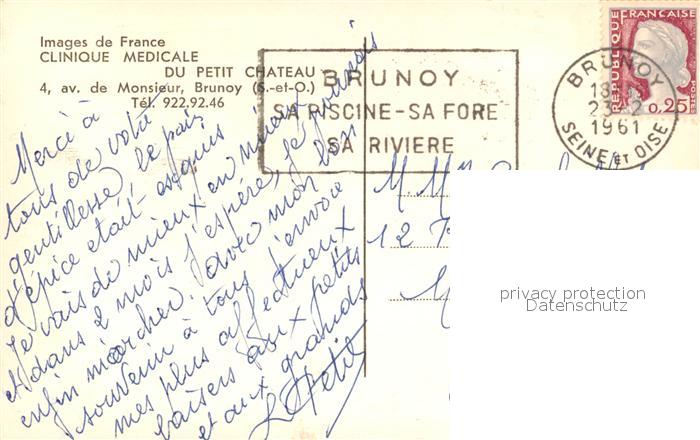 Images de France
CLINIQUE MEDICALE
DU PETIT CHATEAU
4, av. de Monsieur, Brunoy (S.-et-O.)
Tél. 922.92.46
BRUNOY
SA PISCINE - SA FORE
SA RIVIERE
BRUNOY
18
23-2
1961
SEINE ET OISE
REPUBLIQUE FRANCAISE
0,25
POSTES
Merci à
tous de votre
gentillesse, le pain
d'épice était exquis
Je vais de mieux en mieux
et dans 2 mois j'espère, je pourrais
enfin marcher. avec mon bon
souvenir à tous j'envoie
mes plus affectueux
baisers aux petits
et aux grands
Petit
M.
12
privacy protection
Datenschutz